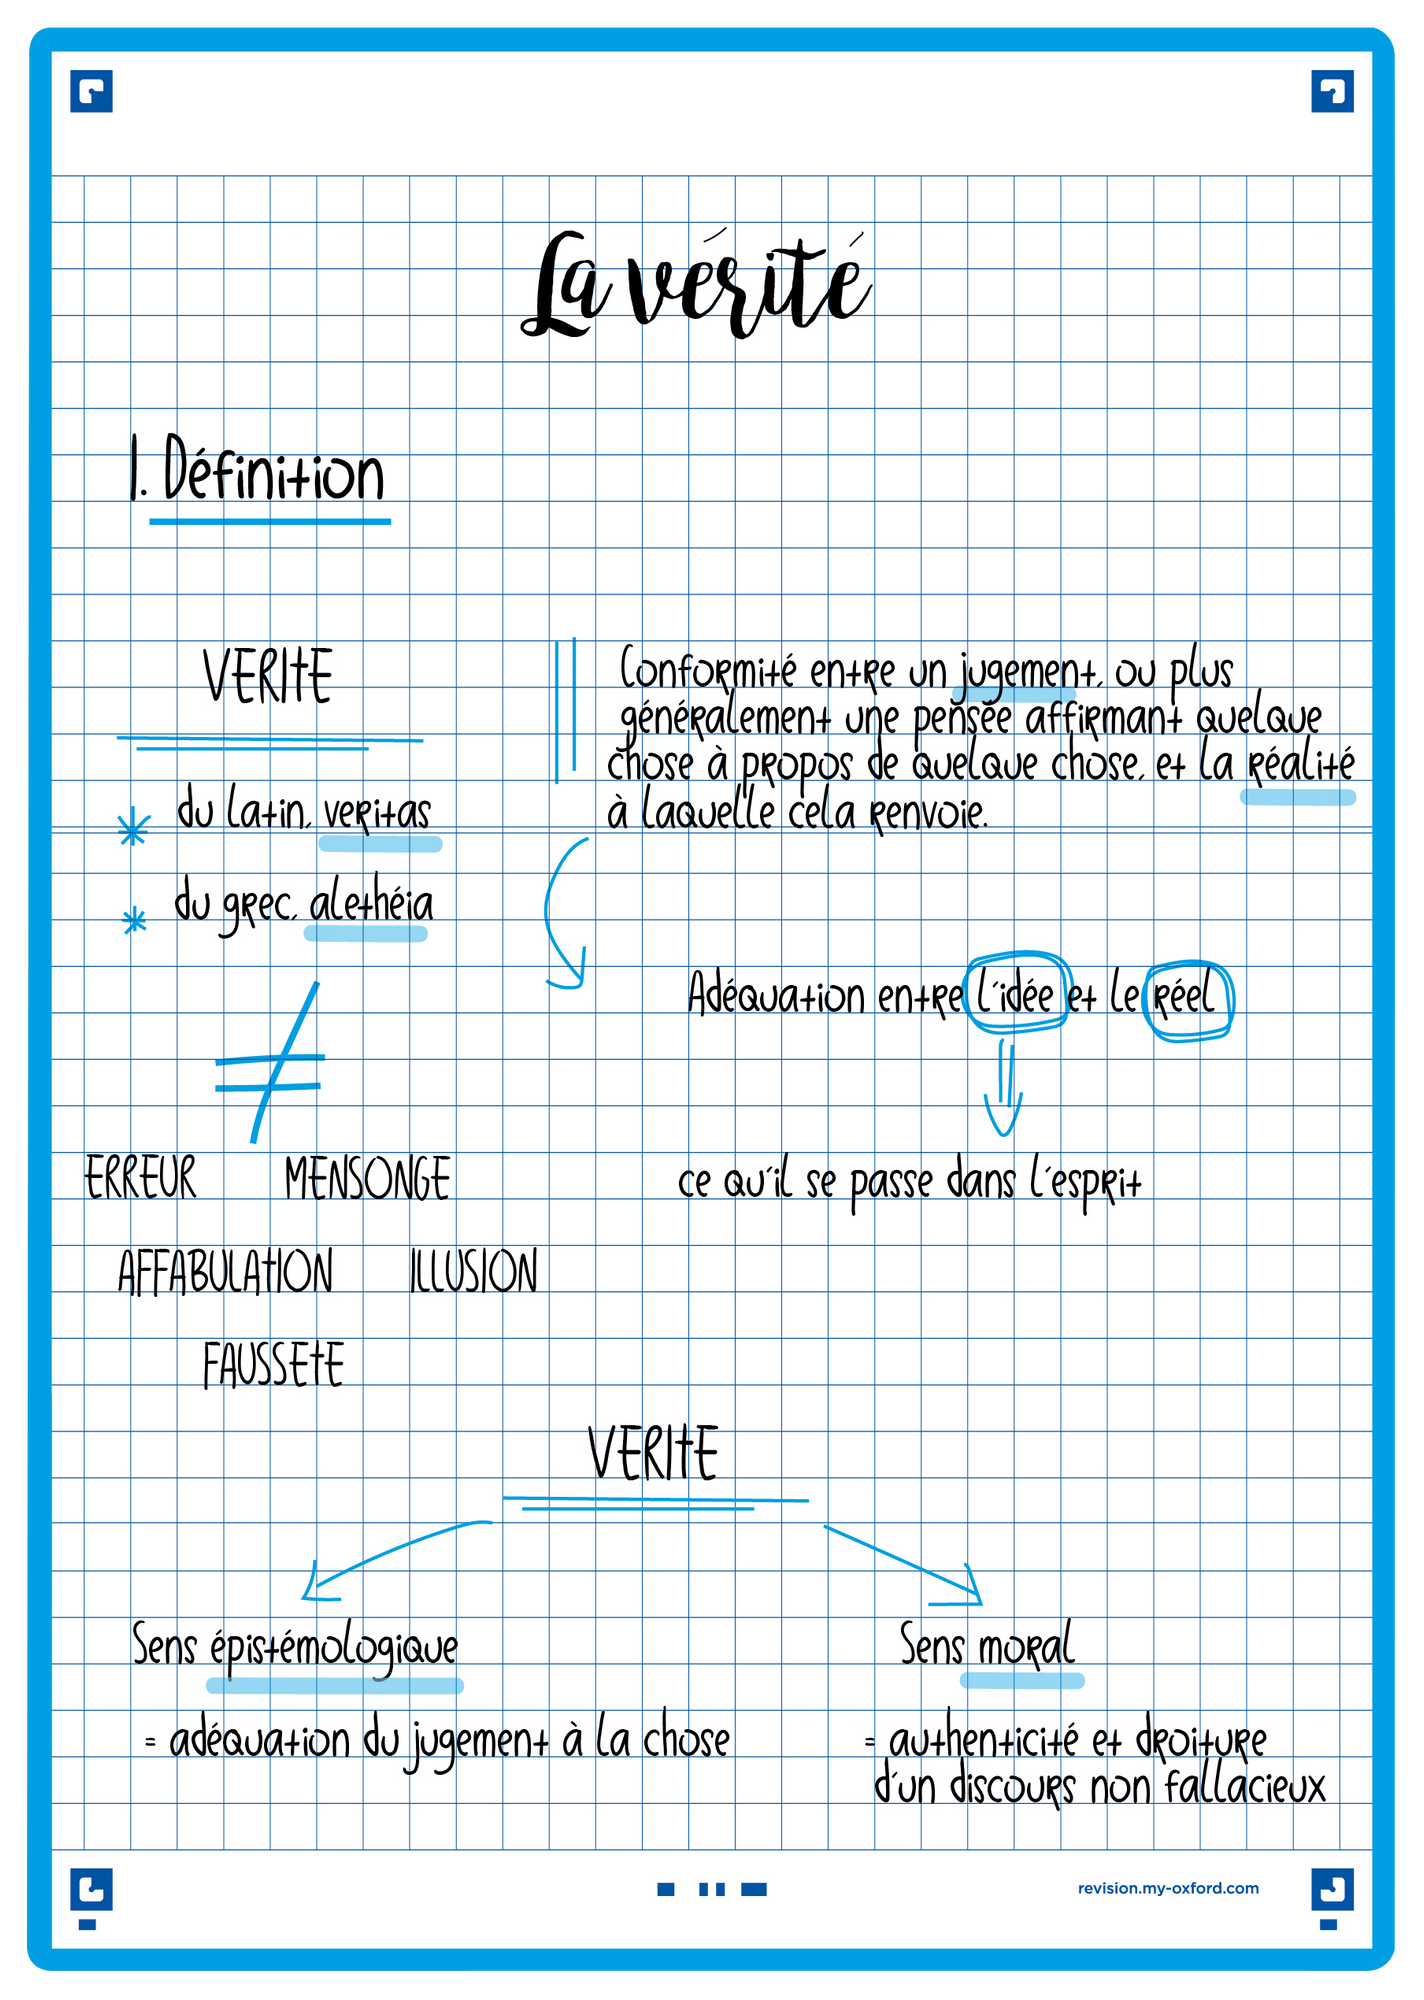 La vérité
1. Définition
VERITE
Conformité entre un jugement, ou plus
généralement une pensée affirmant quelque
chose à propos de quelque chose, et la réalité
à laquelle cela renvoie.
* du latin, veritas
* du grec, alethéia
Adéquation entre l'idée et le réel
≠
ERREUR MENSONGE
ce qu'il se passe dans l'esprit
AFFABULATION ILLUSION
FAUSSETE
VERITE
Sens épistémologique
= adéquation du jugement à la chose
Sens moral
= authenticité et droiture
d'un discours non fallacieux
revision.my-oxford.com